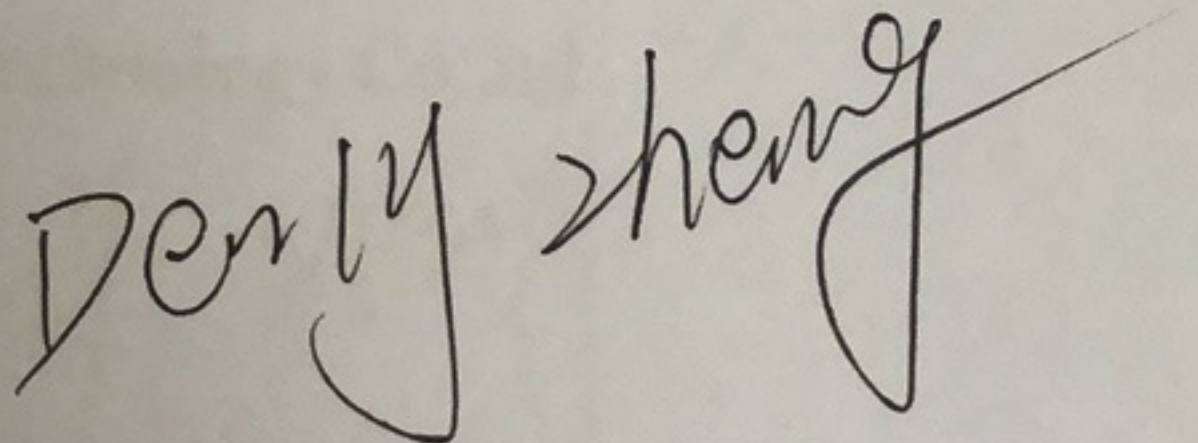 Denly Zheng